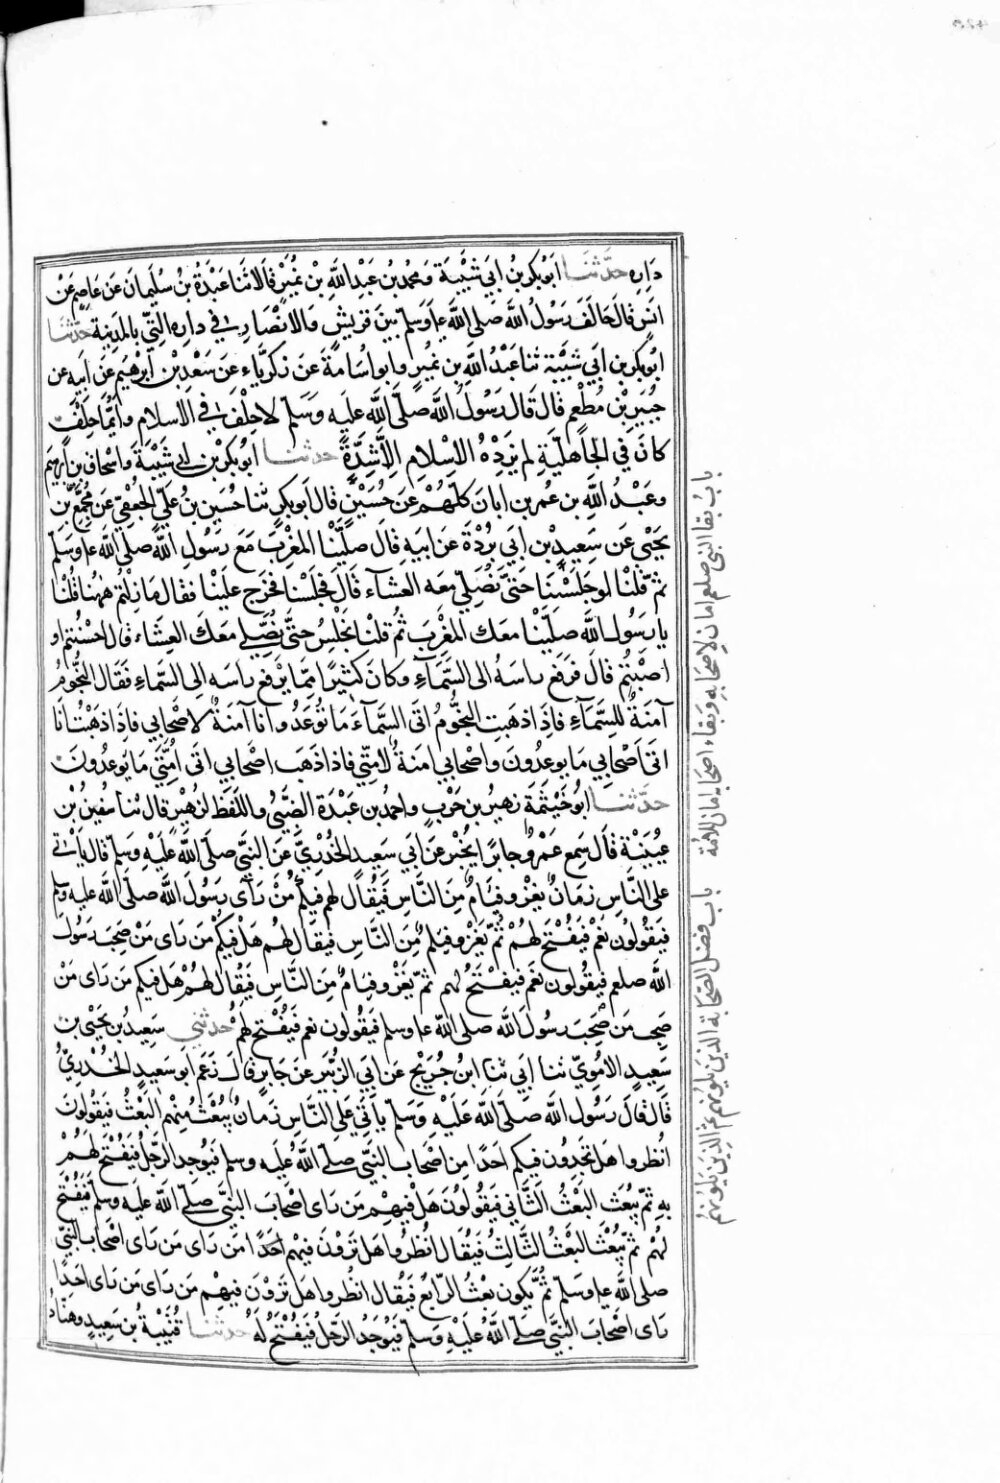 داره حدثنا ابو بكر بن ابي شيبة ومحمد بن عبد الله بن نمير قالا ثنا عبدة بن سليمان عن عاصم عن
انس قال حالف رسول الله صلى الله ع وسلم بين قريش والانصار في داره التي بالمدينة حدثنا
ابو بكر بن ابي شيبة ثنا عبد الله بن نمير وابو اسامة عن زكرياء عن سعد بن ابرهيم عن ابيه عن
جبير بن مطعم قال قال رسول الله صلى الله عليه وسلم لا حلف في الاسلام وايما حلف
كان في الجاهلية لم يزده الاسلام الا شدة حدثنا ابو بكر بن ابي شيبة واسحاق بن ابرهيم
وعبد الله بن عمر بن ابان كلهم عن حسين قال ابو بكر ثنا حسين بن علي الجعفي عن مجمع بن
يحيى عن سعيد بن ابي بردة عن ابيه قال صلينا المغرب مع رسول الله صلى الله ع وسلم
ثم قلنا لو جلسنا حتى نصلي معه العشاء قال فجلسنا فخرج علينا فقال ما زلتم ههنا قلنا
يا رسول الله صلينا معك المغرب ثم قلنا نجلس حتى نصلي معك العشاء قال احسنتم او
اصبتم قال فرفع راسه الى السماء وكان كثيرا مما يرفع راسه الى السماء فقال النجوم
آمنة للسماء فاذا ذهبت النجوم اتى السماء ما توعد وانا آمنة لاصحابي فاذا ذهبت انا
اتى اصحابي ما يوعدون واصحابي امنة لامتي فاذا ذهب اصحابي اتى امتي ما يوعدون
حدثنا ابو خيثمة زهير بن حرب واحمد بن عبدة الضبي واللفظ لزهير قال ثنا سفين بن
عيينة قال سمع عمرو جابرا يخبر عن ابي سعيد الخدري عن النبي صلى الله عليه وسلم قال ياتي
على الناس زمان يغزو فيام من الناس فيقال لهم فيكم من رآى رسول الله صلى الله عليه وسلم
فيقولون نعم فيفتح لهم ثم يغزو فيام من الناس فيقال لهم هل فيكم من راى من صحب رسول
الله صلعم فيقولون نعم فيفتح لهم ثم يغزو فيام من الناس فيقال لهم هل فيكم من راى من
صحب من صحب رسول الله صلى الله ع وسلم فيقولون نعم فيفتح لهم حدثني سعيد بن يحيى بن
سعيد الاموي ثنا ابي ثنا ابن جريج عن ابي الزبير عن جابر قال زعم ابو سعيد الخدري
قال قال رسول الله صلى الله عليه وسلم ياتي على الناس زمان يبعث منهم البعث فيقولون
انظروا هل تجدون فيكم احدا من اصحاب النبي صلى الله عليه وسلم فيوجد الرجل فيفتح لهم
به ثم يبعث البعث الثاني فيقولون هل فيهم من راى اصحاب النبي صلى الله عليه وسلم فيفتح
لهم ثم يبعث البعث الثالث فيقال انظروا هل ترون فيهم احدا من راى من راى اصحاب النبي
صلى الله ع وسلم ثم يكون بعث الرابع فيقال انظروا هل ترون فيهم من راى من راى احدا
راى اصحاب النبي صلى الله عليه وسلم فيوجد الرجل فيفتح له حدثنا قتيبة بن سعيد وهناد
باب بقا النبي صلعم امان لاصحابه وبقاء اصحابه امان للامة
باب فضل الصحابة الذين يلونهم ثم الذين يلونهم